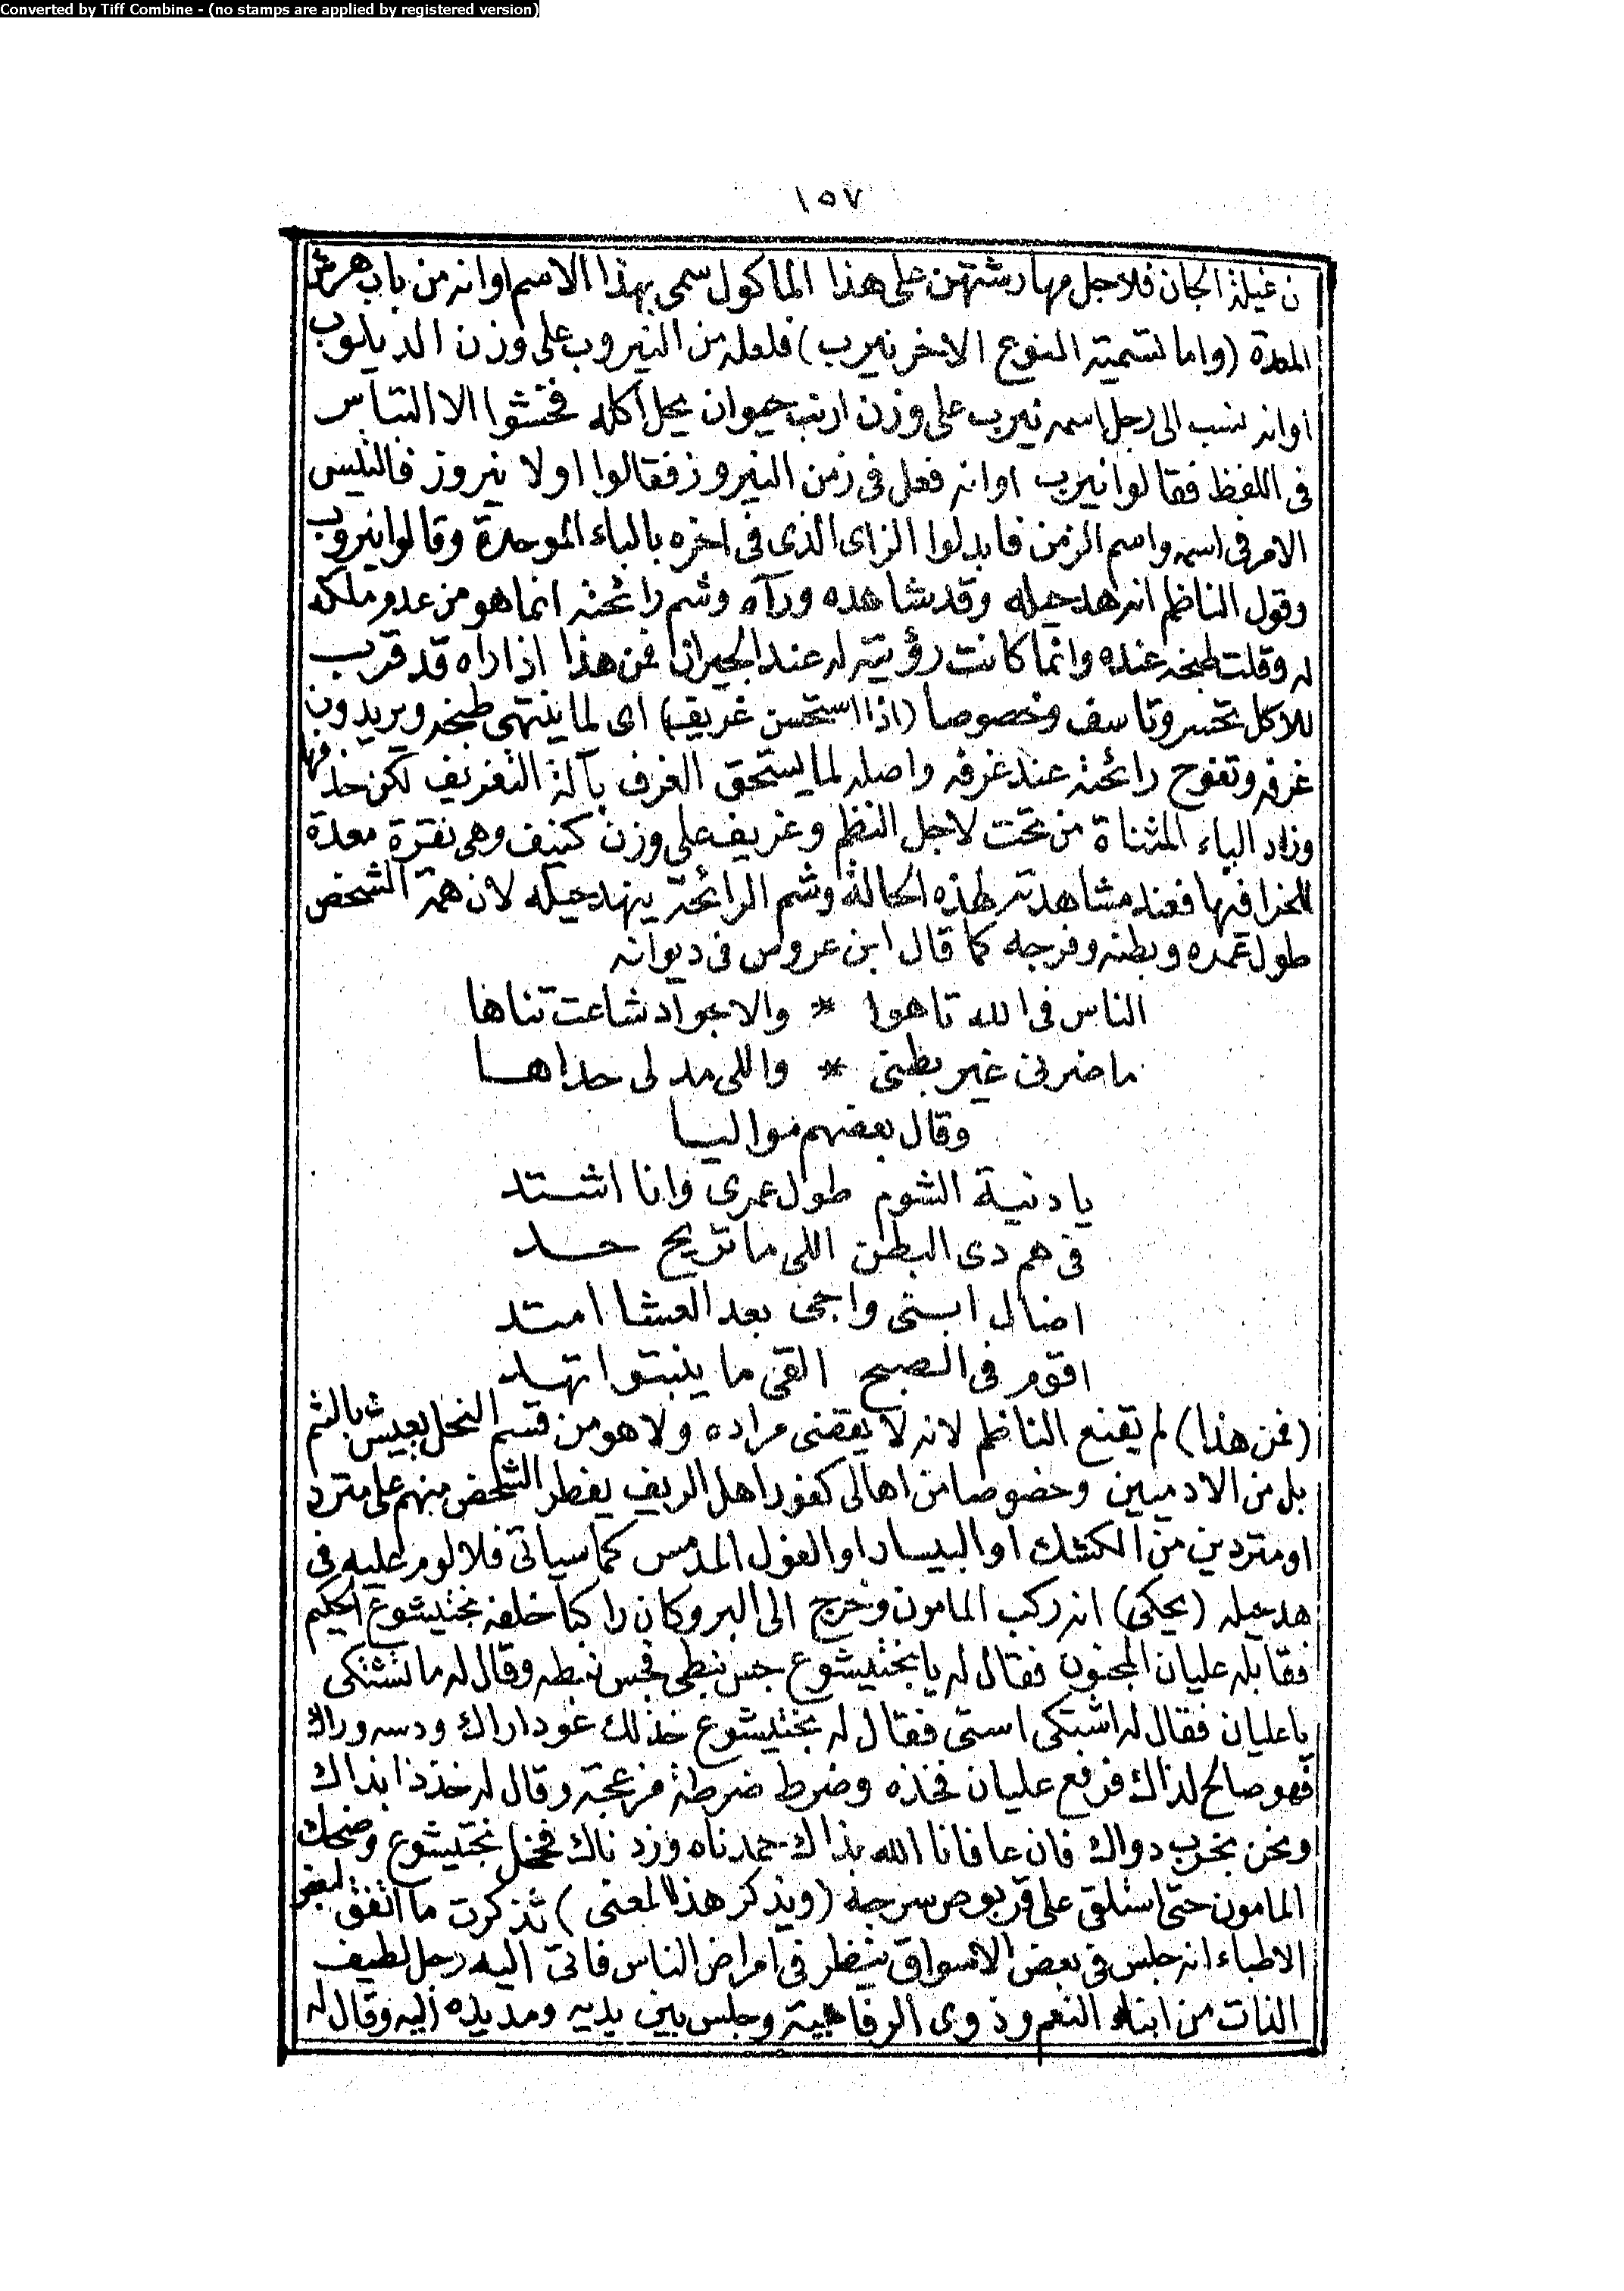 Converted by Tiff Combine - (no stamps are applied by registered version)
١٥٧
ن غيلة الجان فلاجل مهارشتهن على هذا الماكول سمى بهذا الاسم اوانه من باب هرش
المعدة (واما تسميته النوع الاخر نيرب) فلعله من النيروب على وزن الديلوب
اوانه نسب الى رجل اسمه نيرب على وزن ارنب حيوان يحل اكله فخشوا الالتباس
فى اللفظ فقالوا نيرب اوانه فعل فى زمن النيروز فقالوا اولا نيروز فالتبس
الامر فى اسمه واسم الزمن فابدلوا الزاى الذى فى اخره بالباء الموحدة وقالوا نيروب
وقول الناظم انه هد حيله وقد شاهده ورآه وشم رائحته انما هو من عدم ملكه
له وقلت طبخه عنده وانما كانت رؤيته له عند الجيران فمن هذا اذا راه قد قرب
للاكل تحسر وتاسف وخصوصا (اذا استحسن غريف) اى لما ينتهى طبخه ويريدون
غرفه وتفوح رائحته عند غرفه واصله لما يستحق الغرف بآلة التغريف لكن حذفها
وزاد الياء المثناة من تحت لاجل النظم وغريف على وزن كنيف وهى نقرة معدة
للخرا فيها فعند مشاهدته لهذه الحالة وشم الرائحة ينهد حيله لان همة الشخص
طول عمره وبطنه وفرجه كما قال ابن عروس فى ديوانه
الناس فى الله تاهوا * والاجواد شاعت تناها
ماضرنى غير بطنى * واللى مد لى حداها
وقال بعضهم مواليا
يا دنية الشوم طول عمرى وانا اشتد
فى هم دى البطن اللى ما تريح حد
اضال ابنى واجى بعد العشا امتد
اقوم فى الصبح القى ما ينبتوا تهد
(فمن هذا) لم يقنع الناظم لانه لا يقضى مراده ولا هو من قسم النحل يعيش بالشم
بل من الادميين وخصوصا من اهالى كفور اهل الريف يفطر الشخص منهم على مترد
او متردين من الكشك او البيسار او الفول المدمس كما سياتى فلا لوم عليه فى
هد حيله (يحكى) انه ركب المامون وخرج الى البر وكان راكبا خلفه بختيشوع الحكيم
فقابله عليان المجنون فقال له يا بختيشوع جس نبطى فجس نبطه وقال له ما تشتكى
يا عليان فقال له اشتكى استى فقال له بختيشوع خذ لك عود اراك ودسه وراك
فهو صالح لذاك فرفع عليان فخذه وضرط ضرطة مزعجة وقال له خذ ذا بذاك
ونحن نجرب دواك فان عافانا الله بذاك حمدناه وزدناك فخجل بختيشوع وضحك
المامون حتى استلقى على قربوص سرجه (ويذكر هذا المعنى) تذكرت ما اتفق لبعض
الاطباء انه جلس فى بعض الاسواق ينظر فى امراض الناس فاتى اليه رجل لطيف
الذات من ابناء النعم وذوى الرفاهية وجلس بين يديه ومد يده اليه وقال له